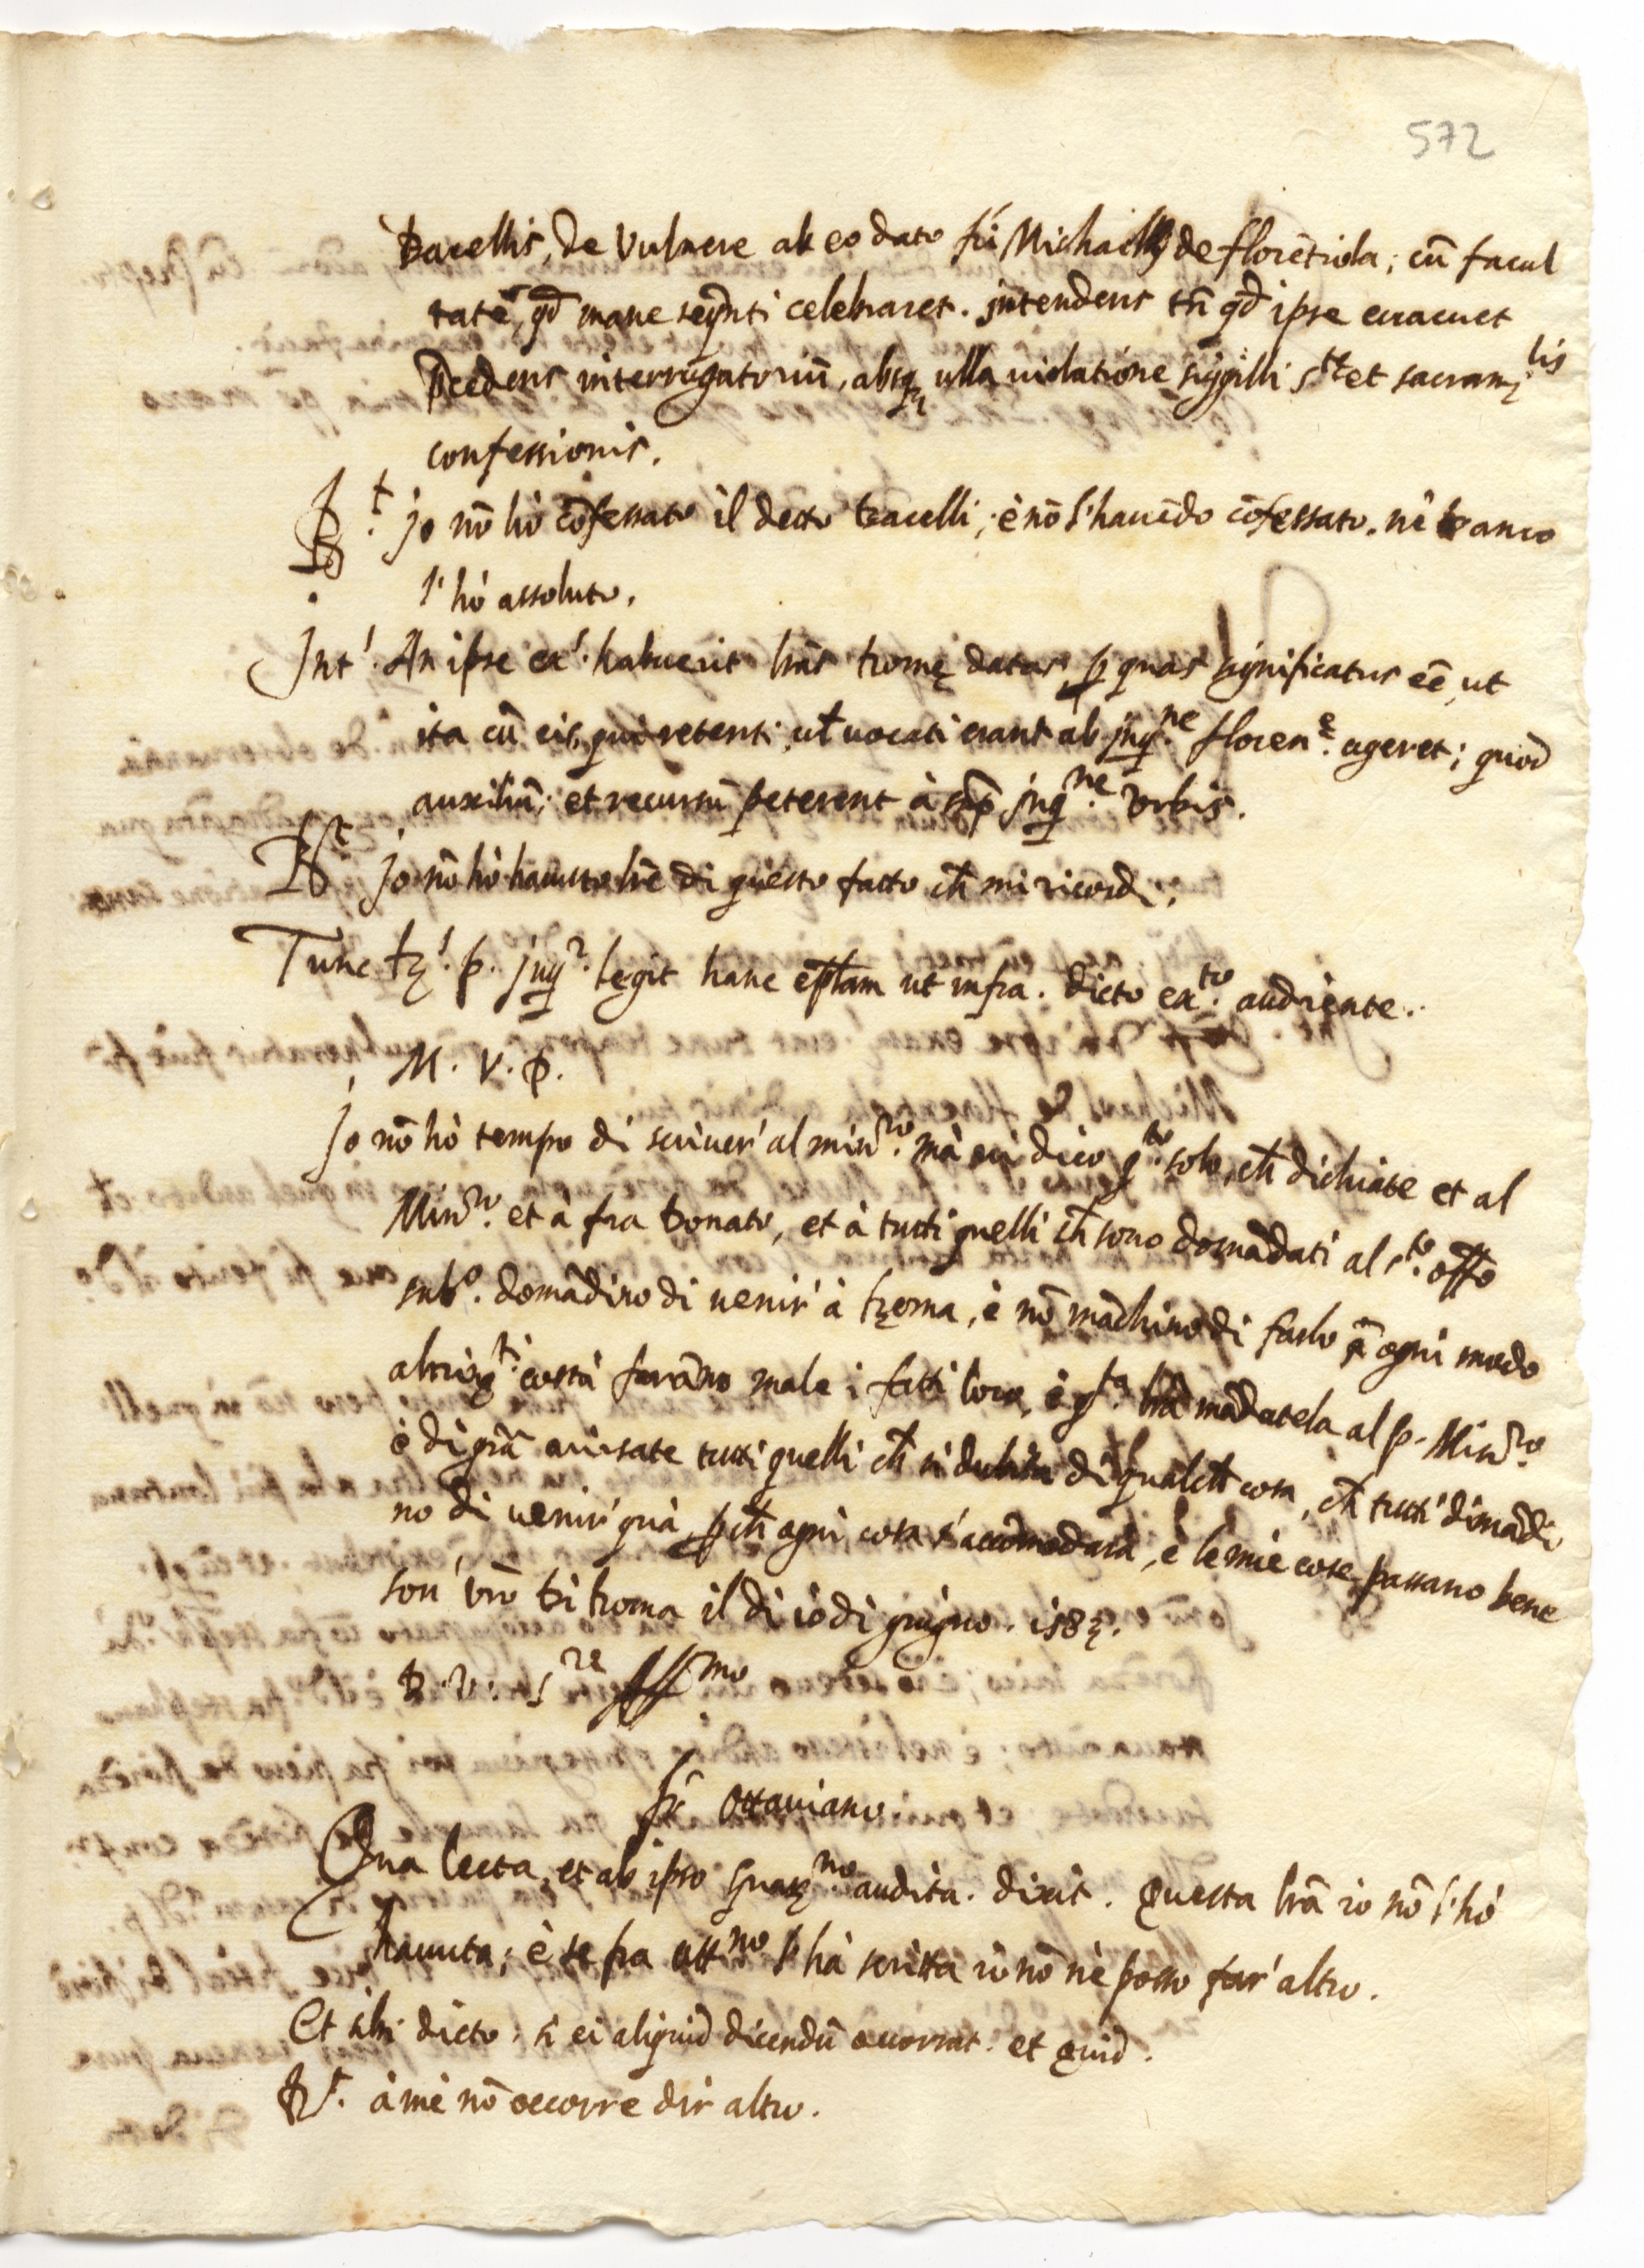 572
Bacellis, de vulnere ab eo dato fri Michaeli de florētiola; cū facul
tatē, qd mane seqnti celebraret. intendens tn qd ipse evacuet
pcedens interrogatoriū, absq ulla violatione sigilli s.te et sacram.lis
confessionis.
R.t io nō hò cōfessato il detto bacelli; è nō l'havēdo cōfessato, nè anco
l'hò assoluto.
Int.s An ipse ex.s habuerit lras Romę datas, p quas significatus eē, ut
ita cū eis, qui retenti, vl vocati erant ab Inq.ne floren.e ageret; quod
auxiliū, et recursū peterent à Inq.ne Urbis.
R.t io nō hò havuto lre di questo fatto ch mi ricordi.
Tunc R.s p. Inq.r legit hanc eplam ut infra. dicto ex.to audiente.
M. V. P.
Io nō hò tempo di scriver' al min.ro mà vi dico q.to solo, ch dichiate et al
Min.ro et à fra Donato, et à tutti quelli ch sono domādati al s.to offo
sub.o domādino di venir' à Roma, è nō māchino di farlo ī ogni modo
altrim.ti costà farāno male i fatti loro, è q.ta lra mādatela al p. Min.ro
è di gra avisate tutti quelli ch si dubita di qualch cosa, ch tutti dimādi
no di venir' quà, pch ogni cosa s'accōmodarà, è le mie cose passano bene
son' vro Di Roma il dì 10 di giugno. 158
D. V. S.re Aff.mo
fr Ottaviano
Qua lecta, et ab ipso Guar.no audita. dixit. Questa lra io nō l'hò
havuta; è se fra Ott.no l'hà scritta iò nō nè posso far' altro.
Et sibi dicto, si ei aliquid dicendū occorrat. et quid.
R.t à mè nō occorre dir altro.